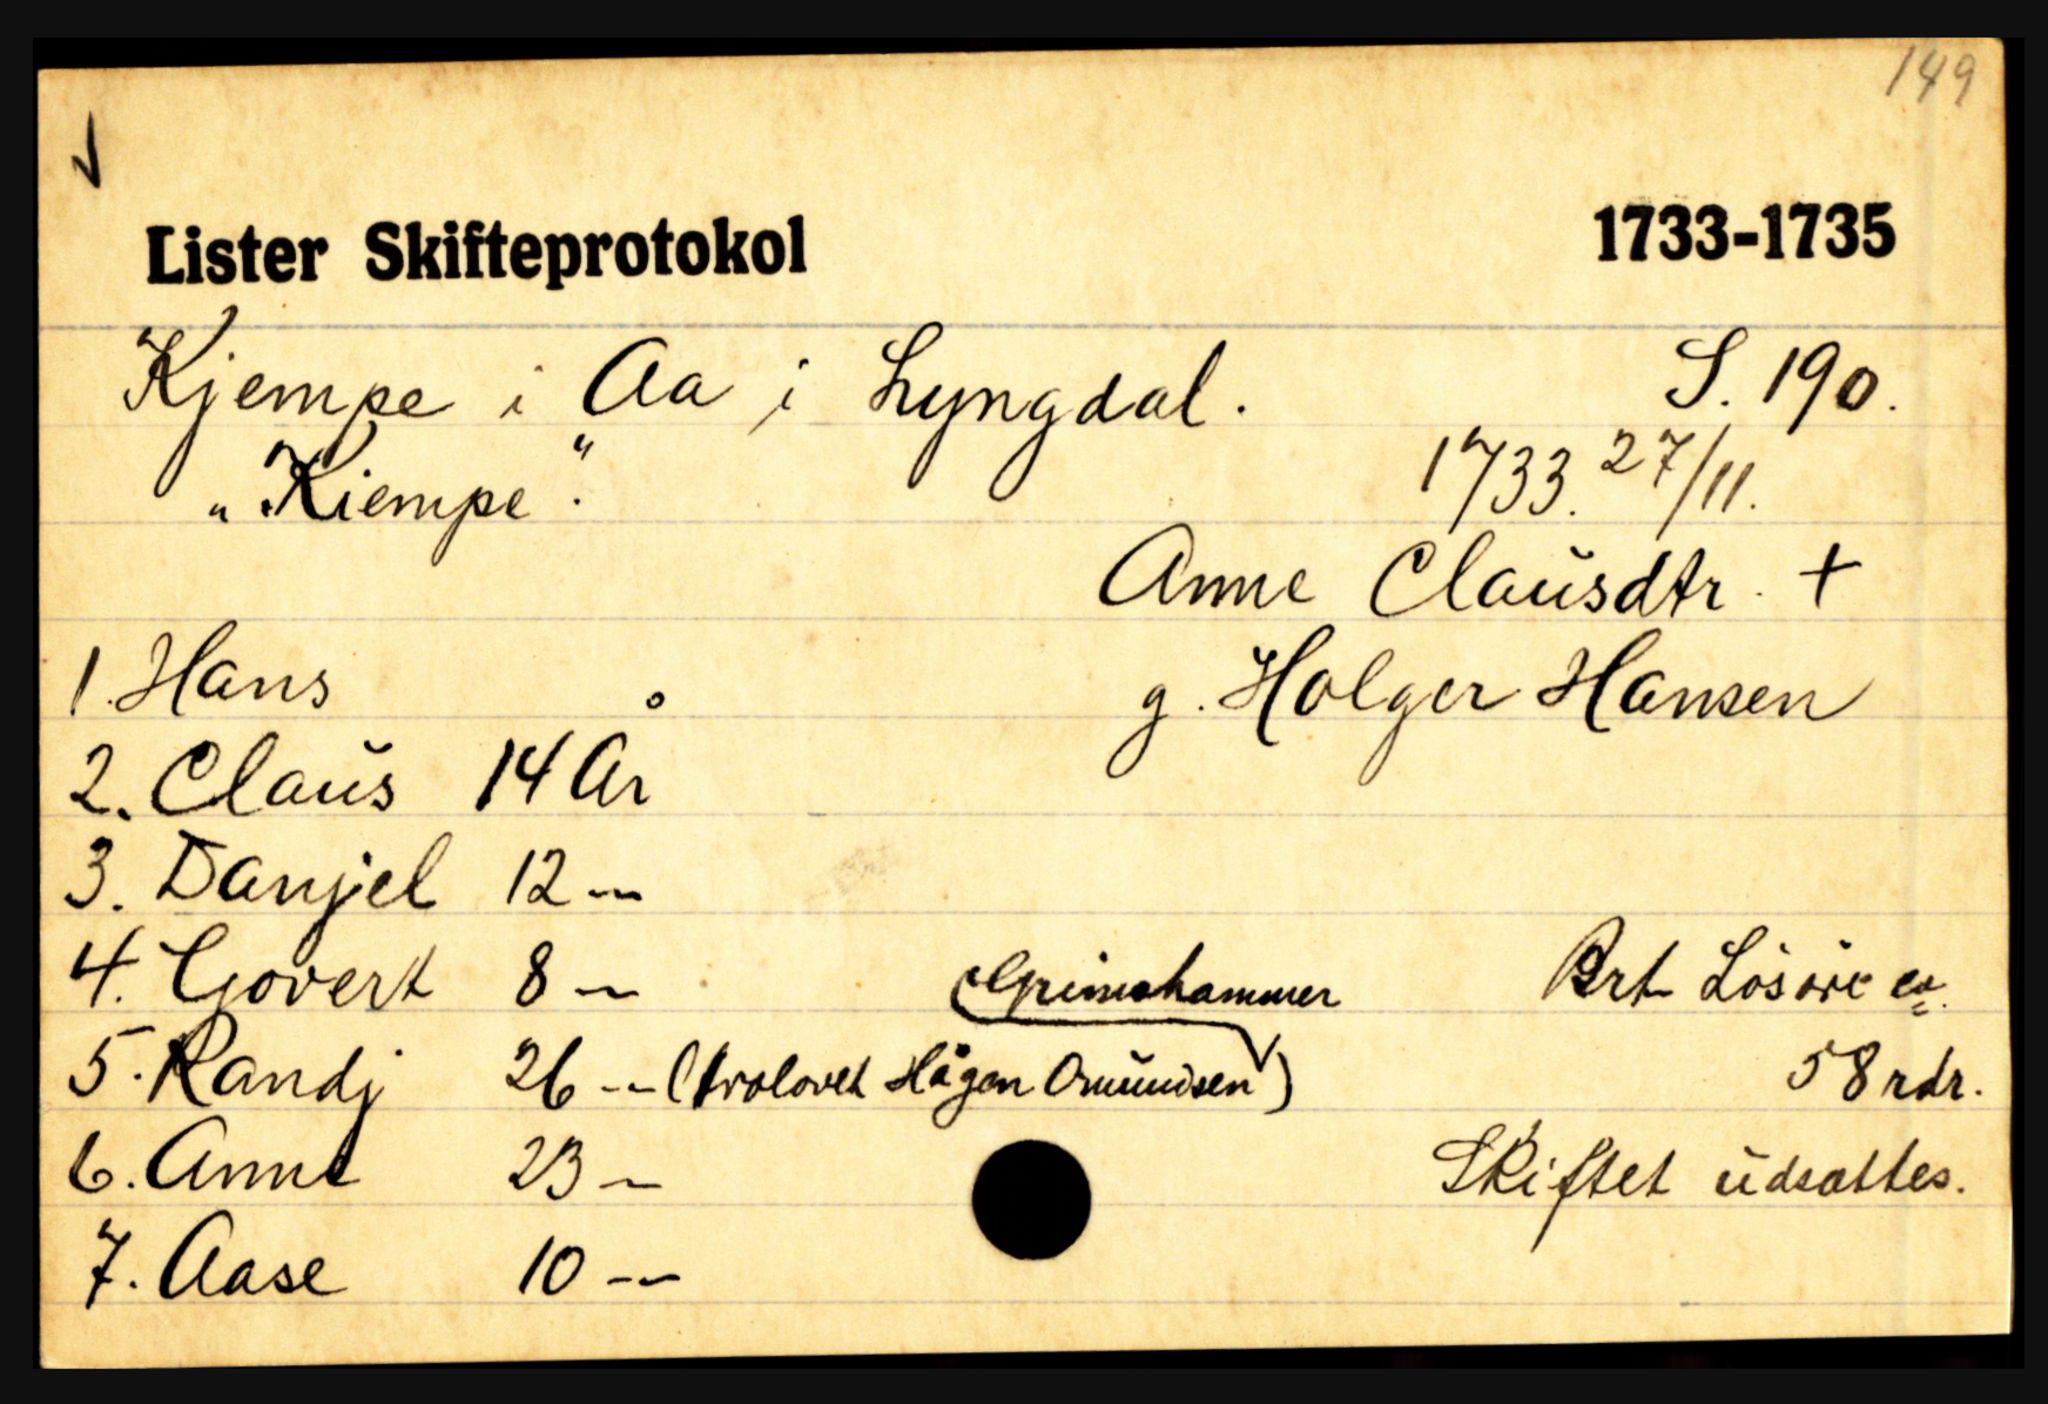 149
✓
Lister Skifteprotokol 1733-1735
Kjempe i Aa i Lyngdal. S. 190.
„Kiempe". 1733. 27/11.
Anne Claŭsdtr. +
1. Hans g. Holger Hansen
2. Claŭs 14 År
3. Danjel 12 —
4. Govert 8 — Grimshammer Brt Lösöre
5. Randj 26 — (trolovet Hågen Omŭndsen) 58 rdr.
6. Anne 23 — Skiftet ŭdsattes.
7. Aase 10 —